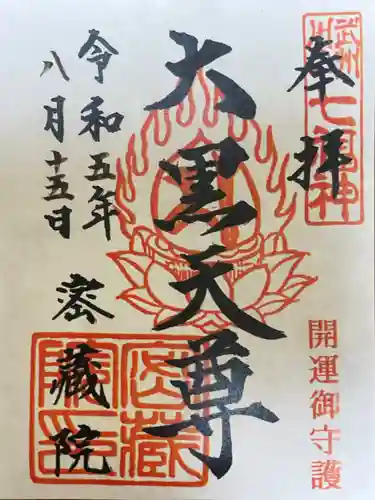 奉拝
七福神
開運御守護
大黒天尊
令和五年
八月十五日
密蔵院